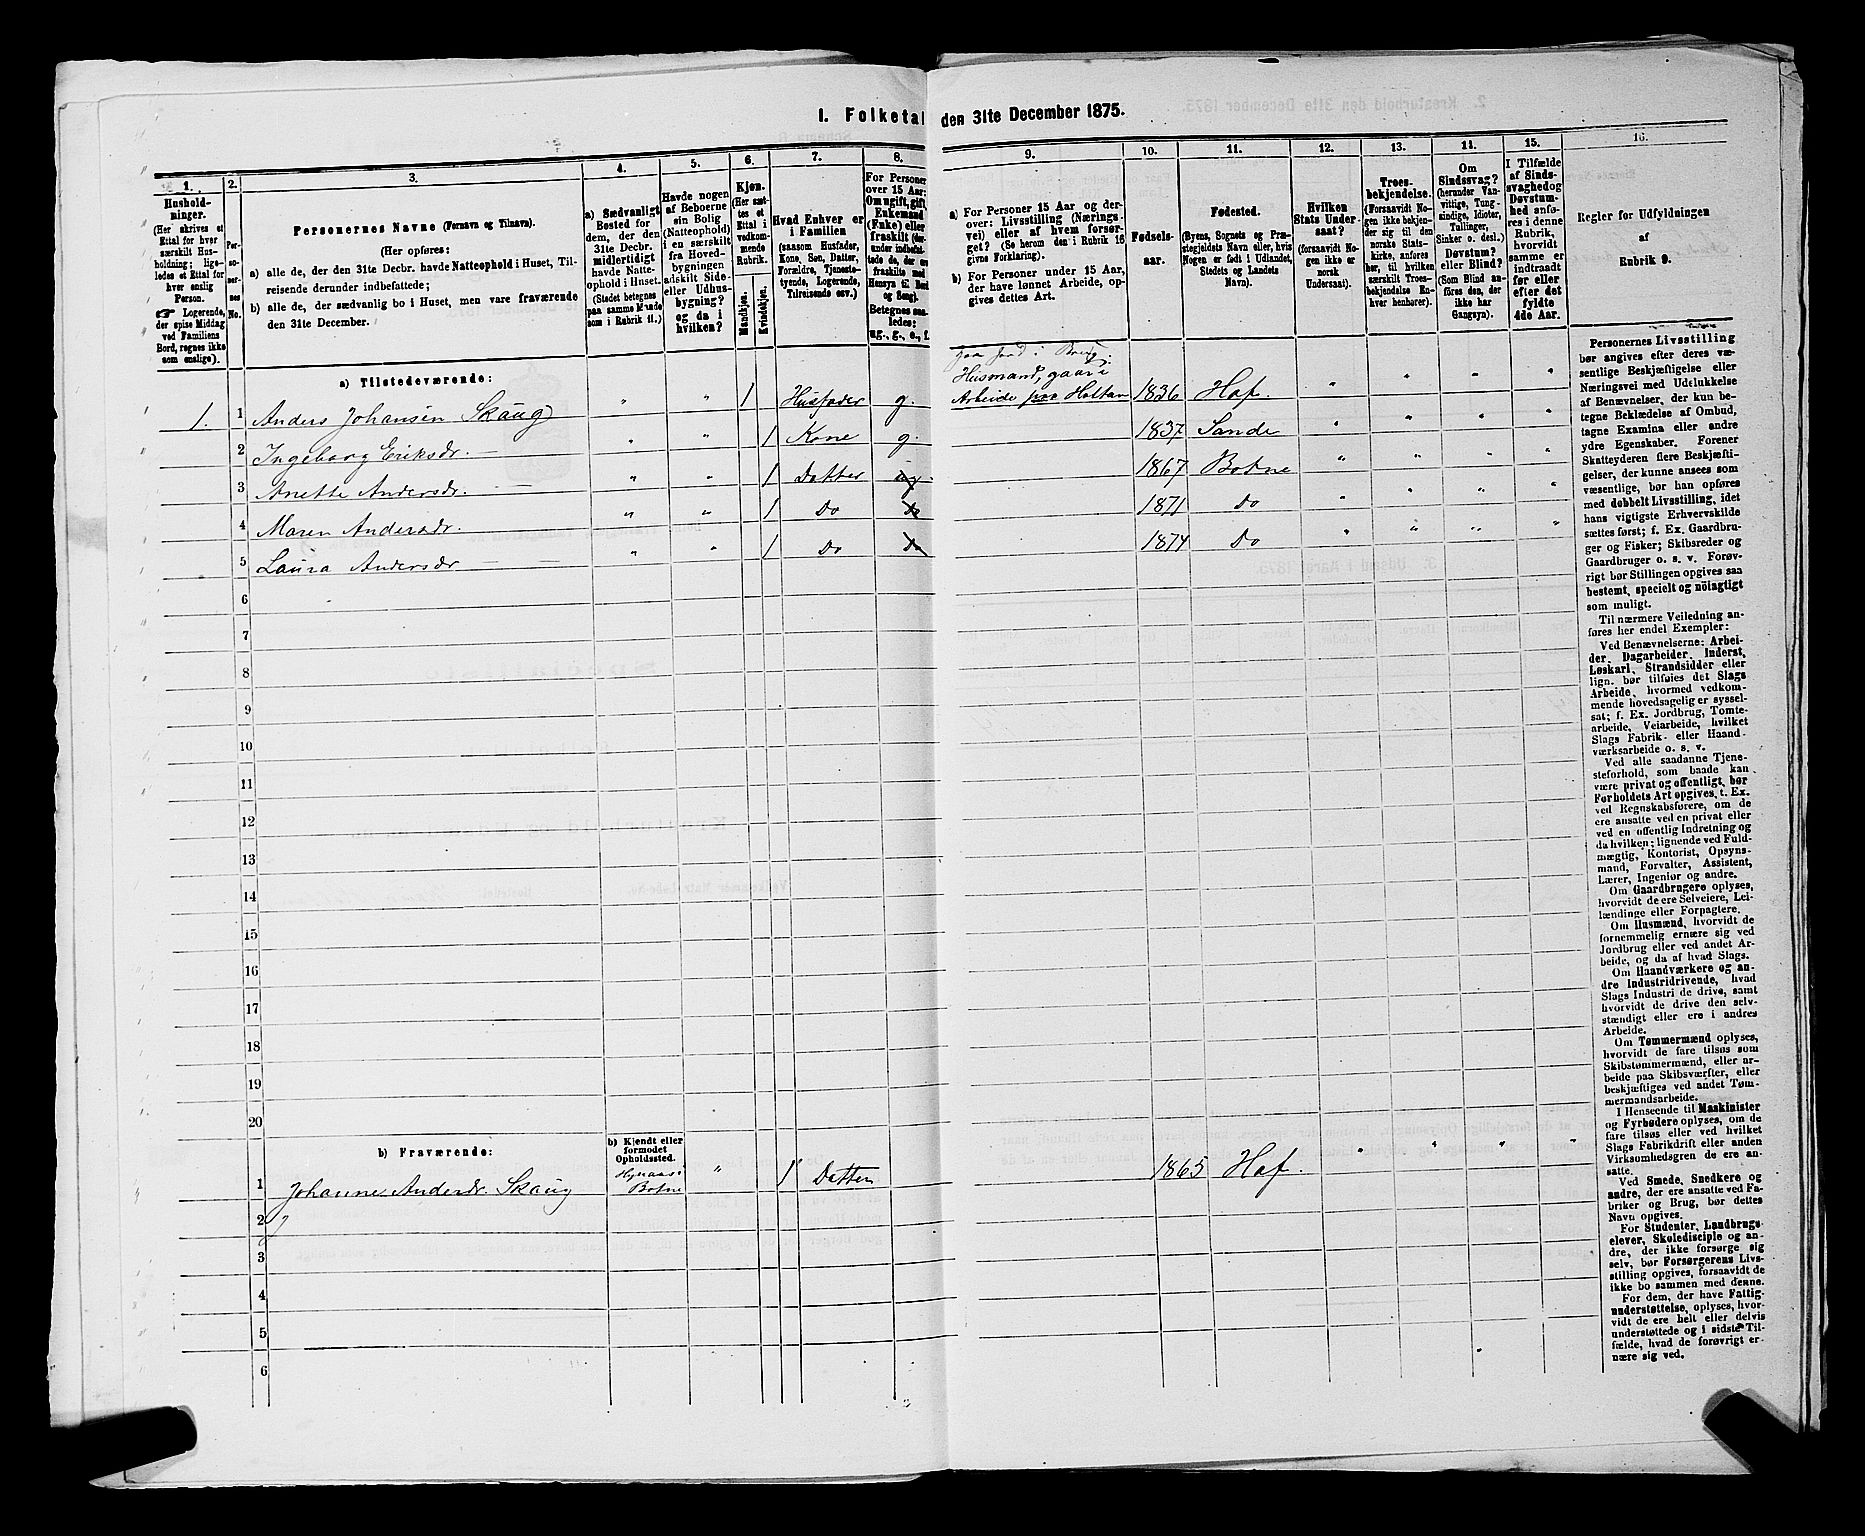 I. Folketal den 31te December 1875.
1. 2. 3. 4. 5. 6. 7. 8. 9. 10. 11. 12. 13. 14. 15. 16.
Husholdninger.
(Her skrives et
Ettal for hver
særskilt Hus-
holdning; lige-
ledes et Ettal for
hver enslig
Person.
☞ Logerende,
der spise Middag
ved Familiens
Bord, regnes ikke
som enslige).
Per-
so-
ner-
nes
No.
Personernes Navne (Fornavn og Tilnavn).
(Her opføres:
a) alle de, der den 31te Decbr. havde Natteophold i Huset, Til-
reisende derunder indbefattede;
b) alle de, der sædvanlig bo i Huset, men vare fraværende
den 31te December.
a) Sædvanligt
Bosted for
dem, der den
31te Decbr.
midlertidigt
havde Natte-
ophold i Huset.
(Stedet betegnes
paa samme Maade
som i Rubrik 11.)
Havde nogen
af Beboerne
sin Bolig
(Natteophold)
i en særskilt
fra Hoved-
bygningen
adskilt Side-
eller Udhus-
bygning?
og da i
hvilken?
Kjøn.
(Her sæt-
tes et
Ettal i
vedkom-
mende
Rubrik.
Mandkjøn.
Kvindekjøn.
Hvad Enhver er
i Familien
(saasom Husfader,
Kone, Søn, Datter,
Forældre, Tjeneste-
tyende, Logerende,
Tilreisende osv.)
For Personer
over 15 Aar:
Om ugift, gift,
Enkemand
(Enke) eller
fraskilt (der-
under indbefat-
tede de, der ere
fraskilte med
Hensyn til Bord
og Seng).
Betegnes saa-
ledes:
ug., g., e., f.
a) For Personer 15 Aar og der-
over: Livsstilling (Nærings-
vei) eller af hvem forsør-
get? (Se herom den i Rubrik 16
givne Forklaring).
b) For Personer under 15 Aar,
der have lønnet Arbeide, op-
gives dettes Art.
Fødsels-
aar.
Fødested.
(Byens, Sognets og Præ-
stegjeldets Navn eller, hvis
Nogen er født i Udlandet,
Stedets og Landets
Navn).
Hvilken
Stats Under-
saat?
(forsaavidt No-
gen ikke er
norsk
Undersaat).
Troes-
bekjendelse.
(Forsaavidt No-
gen ikke bekjen-
der sig til den
norske Stats-
kirke, anføres
her, til hvilken
særskilt Troes-
bekjendelse En-
hver henhører).
Om
Sindssvag?
(herunder Van-
vittige, Tung-
sindige, Idioter,
Tullinger,
Sinker o. desl.)
Døvstum?
eller Blind?
(Som Blind an-
føres den, der
ikke har
Gangsyn).
I Tilfælde
af Sinds-
svaghed og
Døvstum-
hed anfø-
res i denne
Rubrik,
hvorvidt
samme er
indtraadt
før eller
efter det
fyldte
4de Aar.
Regler for Udfyldningen
af
Rubrik 9.
a) Tilstedeværende:
1. 1 Anders Johansen Skaug " " 1 Husfader g. Husmand, gaar i Arbeide paa Holtan 1836 Hof. " " " "
2 Ingeborg Eriksdr. — " " 1 Kone g. 1837 Sande " " " "
3 Anette Andersdr. — " " 1 Datter ug. 1867 Botne " " " "
4 Maren Andersdr. " " 1 Do Do 1871 Do " " " "
5 Laura Andersdr — — " " 1 Do Do 1874 Do " " " "
6
7
8
9
10
11
12
13
14
15
16
17
18
19
20
b) Fraværende:
b) Kjendt eller
formodet
Opholdssted.
1 Johanne Andersdr. Skaug Botne " 1 Datter 1865 Hof. " " " "
2
3
4
5
6
Personernes Livsstilling
bør angives efter deres væ-
sentlige Beskjæftigelse eller
Næringsvei med Udelukkelse
af Benævnelser, der kun be-
tegne Beklædelse af Ombud,
tagne Examina eller andre
ydre Egenskaber. Forener
Skatteyderen flere Beskjæfti-
gelser, der kunne ansees som
væsentlige, bør han opføres
med dobbelt Livsstilling, idet
hans vigtigste Erhvervskilde
sættes først; f. Ex. Gaardbru-
ger og Fisker; Skibsreder og
Gaardbruger o. s. v. Forøv-
rigt bør Stillingen opgives saa
bestemt, specielt og nöiagtigt
som muligt.
Til nærmere Veiledning an-
føres her endel Exempler:
Ved Benævnelserne: Arbei-
der, Dagarbeider, Inderst,
Løskarl, Strandsidder eller
lign. bør tilføies det Slags
Arbeide, hvormed vedkom-
mende hovedsagelig er syssel-
sat; f. Ex. Jordbrug, Tomte-
arbeide, Veiarbeide, hvilket
Slags Fabrik- eller Haand-
værksarbeide o. s. v.
Ved alle saadanne Tjene-
steforhold, som baade kan
være privat og offentligt, bør
Forholdets Art opgives, t. Ex.
ved Regnskabsførere, om de
ere ansatte ved en privat eller
ved en offentlig Indretning og
da hvilken; lignende ved Fuld-
mægtig, Kontorist, Opsyns-
mand, Forvalter, Assistent,
Lærer, Ingeniør og andre.
Om Gaardbrugere oplyses,
hvorvidt de ere Selveiere, Lei-
lændinge eller Forpagtere.
Om Husmænd, hvorvidt de
fornemmelig ernære sig ved
Jordbrug eller ved andet Ar-
beide, og da af hvad Slags.
Om Haandværkere og an-
dre Industridrivende, hvad
Slags Industri de drive, samt
hvorvidt de drive den selv-
stændigt eller ere i andres
Arbeide.
Om Tømmermænd oplyses,
hvorvidt de fare tilsøs som
Skibstømmermænd, eller ar-
beide paa Skibsværfter, eller
beskjæftiges ved andet Tøm-
mermandsarbeide.
I Henseende til Maskinister
og Fyrbødere oplyses, om de
fare tilsøs eller ved hvilket
Slags Fabrikdrift eller anden
Virksomhedsgren de ere an-
satte.
Ved Smede, Snedkere og
andre, der ere ansatte ved Fa-
briker og Brug, bør dettes
Navn opgives.
For Studenter, Landbrugs-
elever, Skoledisciple og an-
dre, der ikke forsørge sig
selv, bør Forsørgerens Livs-
stilling opgives, forsaavidt de
ikke bo sammen med denne.
For dem, der have Fattig-
understøttelse, oplyses, hvor-
vidt de ere helt eller delvis
understøttede og i sidste Til-
fælde, hvad de forøvrigt er-
nære sig ved.